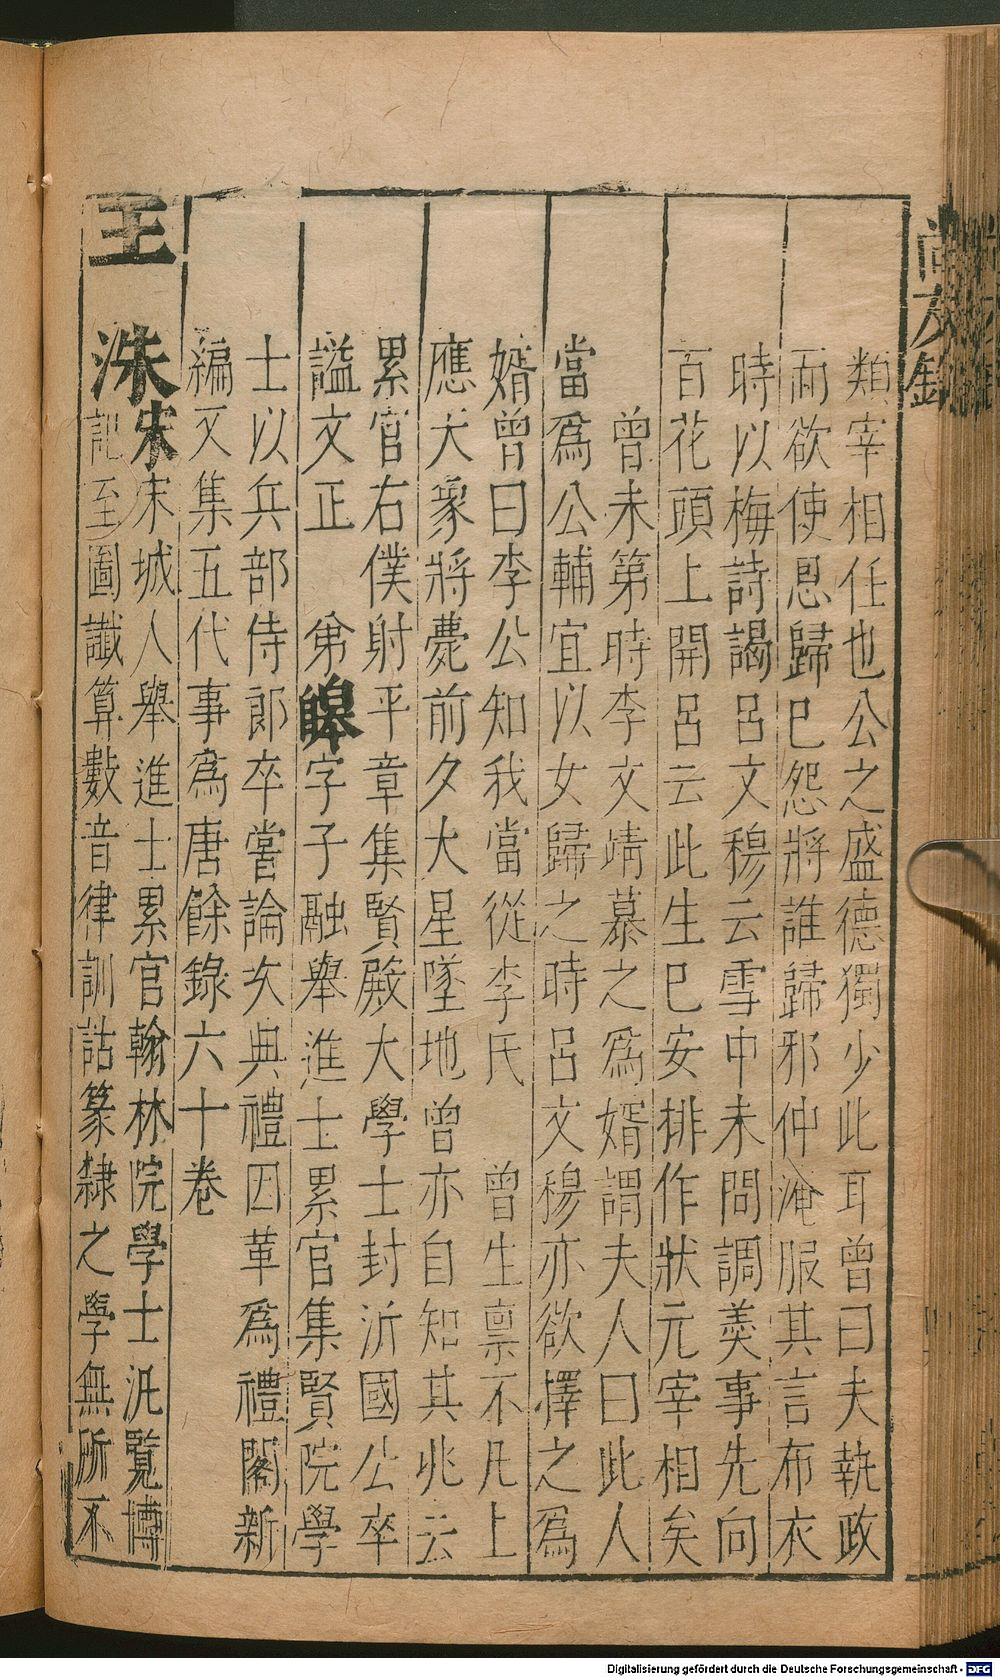 類宰相任也公之盛德獨少此耳曾曰夫執政
而欲使恩歸巳怨將誰歸邪仲淹服其言布衣
時以梅詩謁呂文穆云雪中未問調羹事先向
百花頭上開呂云此生巳安排作狀元宰相矣
曾未第時李文靖慕之為婿謂夫人曰此人
當為公輔宜以女歸之時呂文穆亦欲擇之為
婿曾曰李公知我當從李氏 曾生禀不凡上
應天象將薨前夕大星墜地曾亦自知其兆云
累官右僕射平章集賢殿大學士封沂國公卒
謚文正 弟皞字子融舉進士累官集賢院學
士以兵部侍郎卒嘗論次典禮因革為禮閣新
編又集五代事為唐餘錄六十卷
王 洙宋宋城人舉進士累官翰林院學士汎覽博
記至圖讖算數音律訓詁篆隸之學無所不
尚友錄
Digitalisierung gefördert durch die Deutsche Forschungsgemeinschaft - DFG